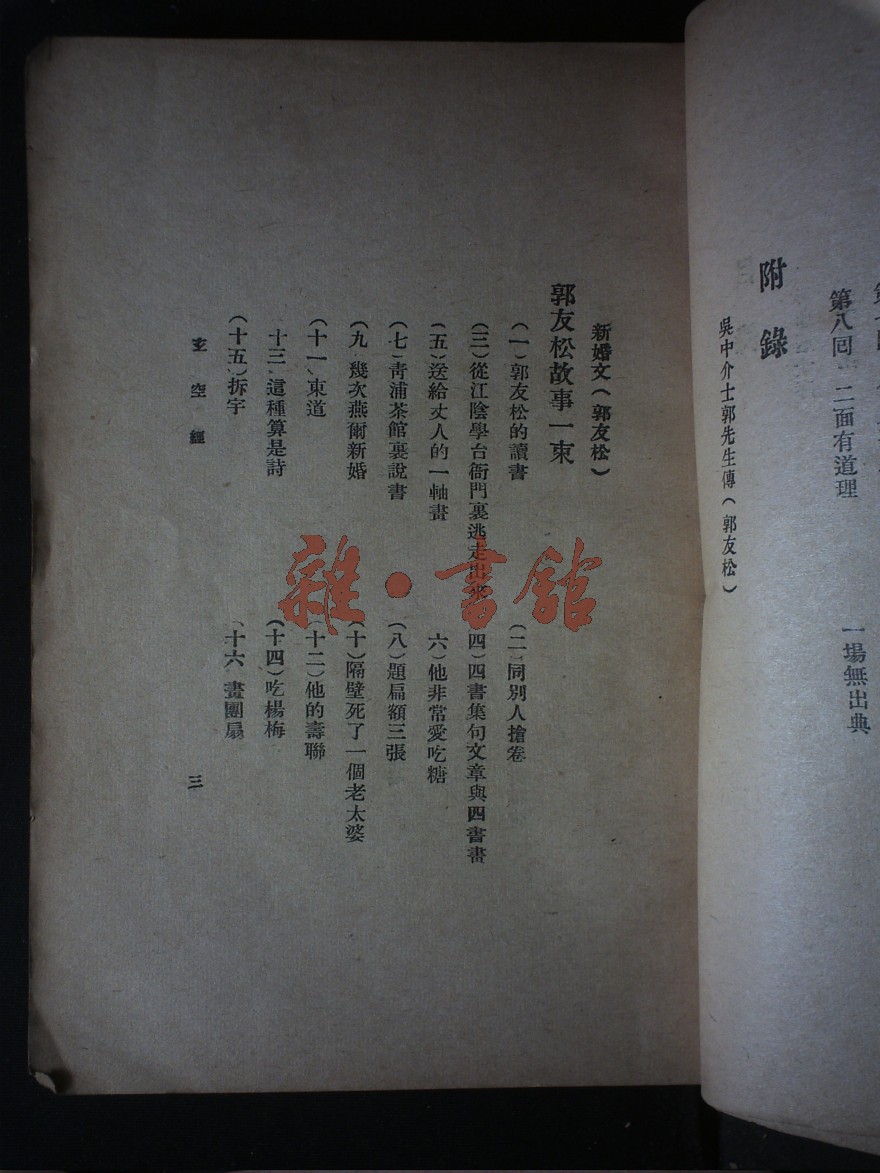 第八回 二面有道理 一場無出典
附錄
吳中介士郭先生傳(郭友松)
新婚文(郭友松)
郭友松故事一束
(一)郭友松的讀書 (二)同別人搶卷
(三)從江陰學台衙門裏逃走出來 四)四書集句文章與四書書
(五)送給丈人的一軸畫 六)他非常愛吃糖
(七)青浦茶館裏說書 (八)題扁額三張
(九 幾次燕爾新婚 (十)隔壁死了一個老太婆
(十一)東道 (十二)他的壽聯
十三)這種算是詩 (十四)吃楊梅
(十五)拆字 (十六)畫團扇
玄空經 三
雜·書館